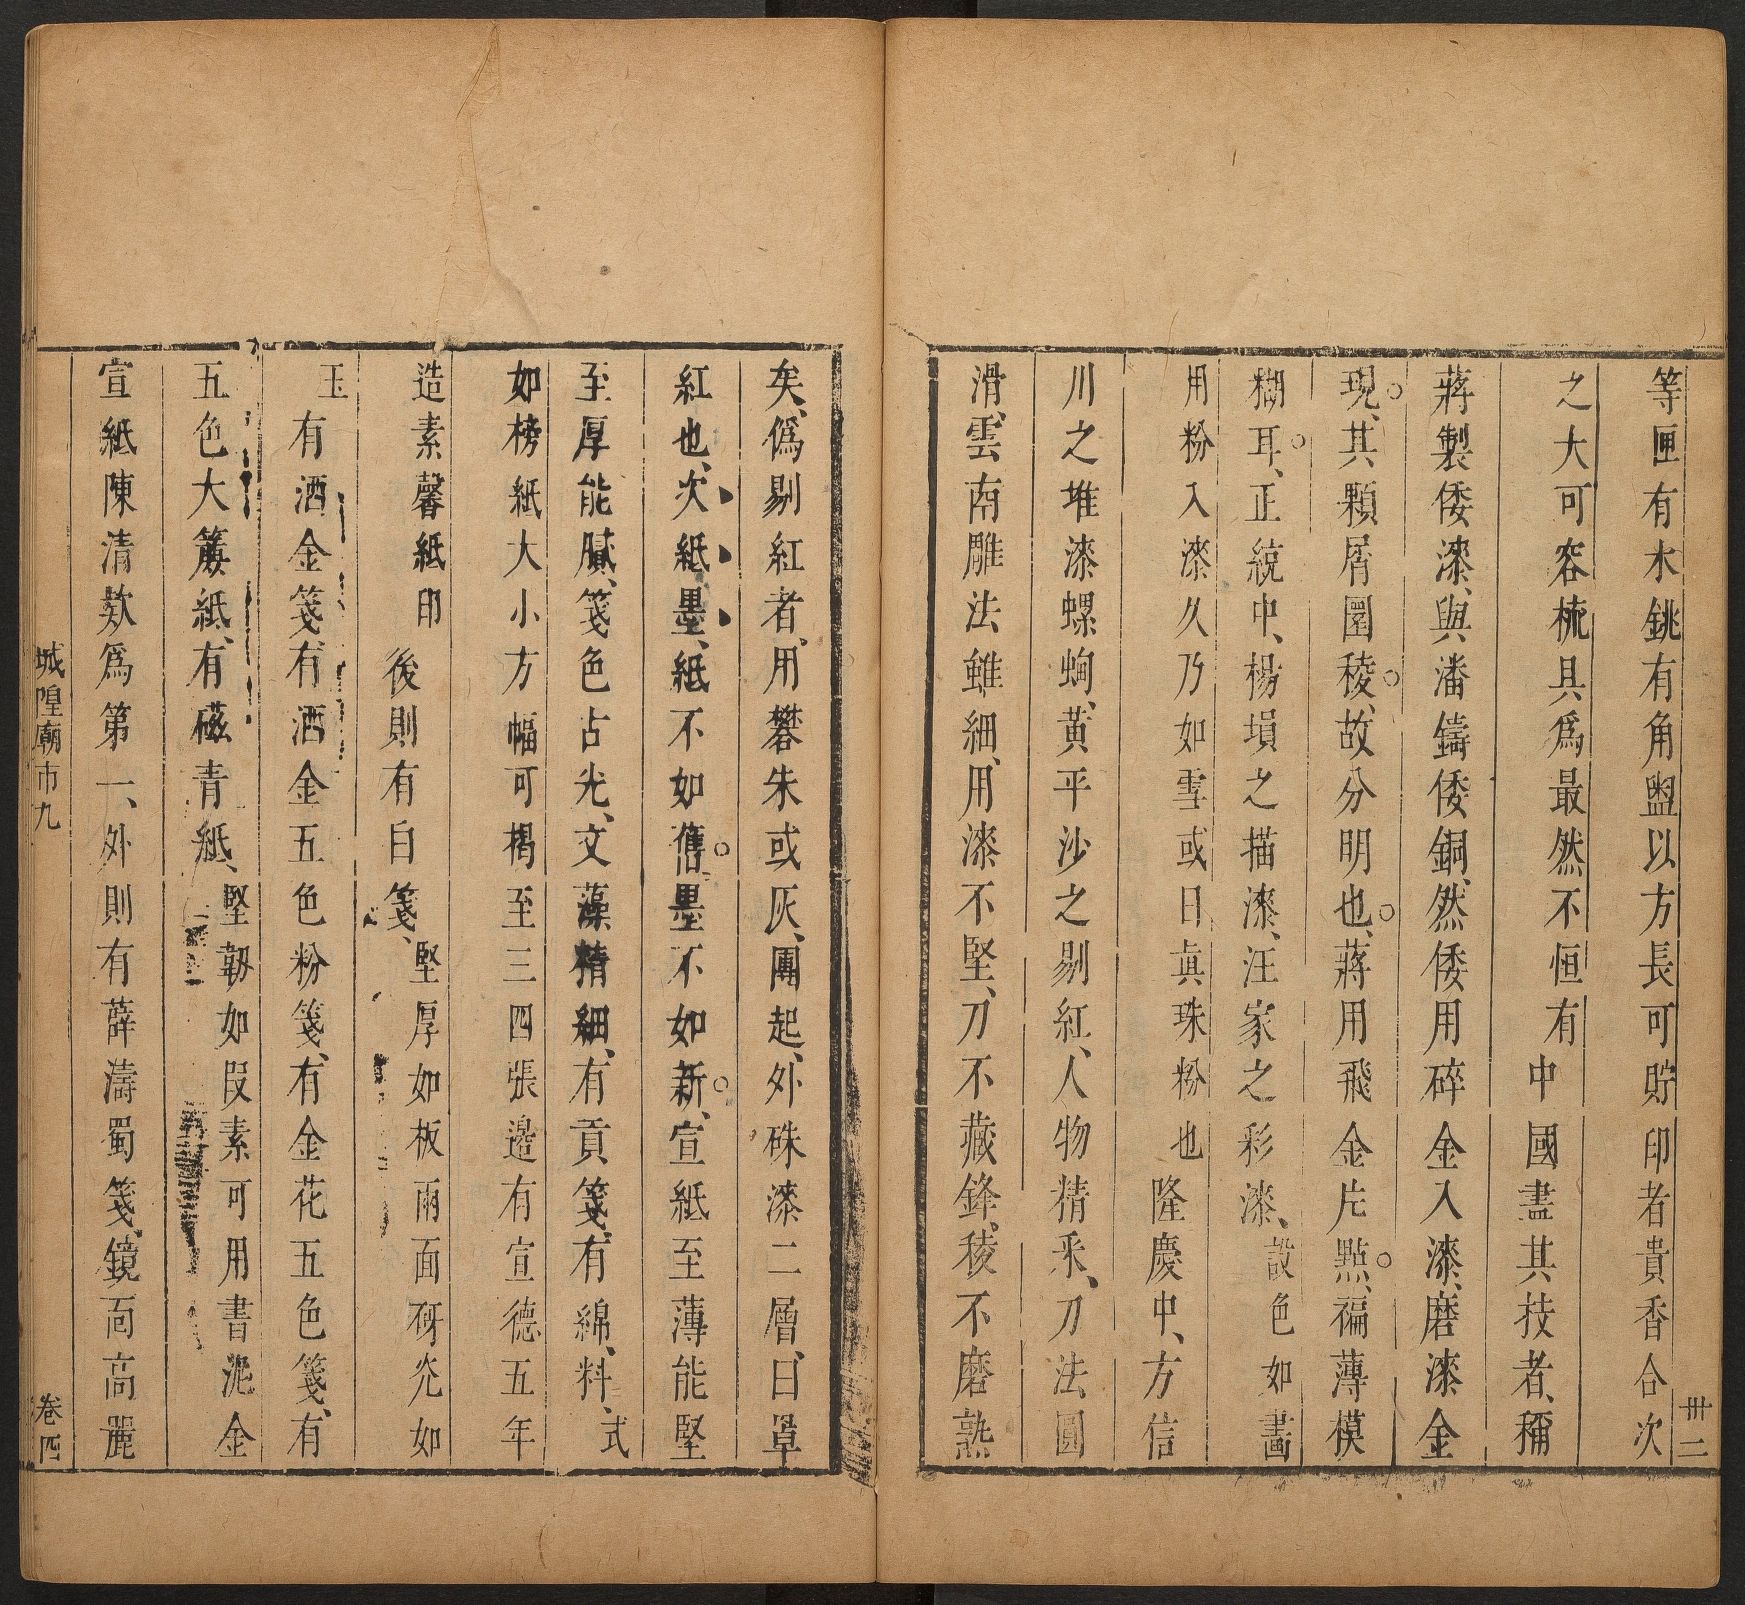 等匣有水銚有角盥以方長可貯印者貴香合次
之大可容梳具爲最然不恒有中國盡其技者、稱
蔣製倭漆、與潘鑄倭銅、然倭用碎金入漆、磨漆金
現、其顆屑圓稜、故分明也、蔣用飛金片點、褊薄模
糊耳、正統中、楊塤之描漆、汪家之彩漆、設色如畫
用粉入漆久乃如雪或曰眞珠粉也隆慶中、方信
川之堆漆螺蜔、黃平沙之剔紅、人物精采、刀法圓
滑、雲南雕法雖細、用漆不堅、刀不藏鋒、稜不磨熟
卅二
矣、僞剔紅者、用礬朱或灰、團起、外硃漆二層、曰罩
紅也、次紙墨、紙不如舊墨不如新、宣紙至薄能堅
至厚能膩、箋色古光、文藻精細、有貢箋、有綿料、式
如榜紙大小方幅可揭至三四張邊有宣德五年
造素馨紙印後則有白箋、堅厚如板兩面砑光如
玉有洒金箋、有洒金五色粉箋、有金花五色箋、有
五色大簾紙、有磁青紙、堅韌如段素可用書泥金
宣紙陳清欵爲第一、外則有薛濤蜀箋、鏡面高麗
城隍廟市九
卷四